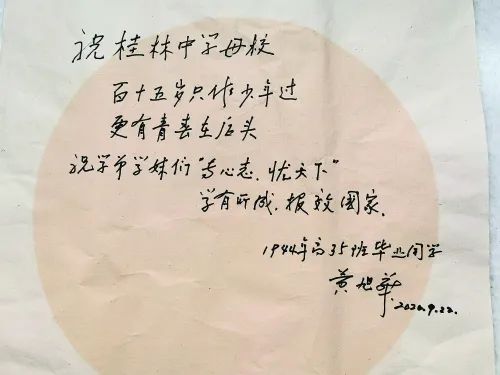 祝桂林中学母校
百十五岁只作少年过
更有青春在后头
祝学弟学妹们“苦心志，忧天下”
学有所成，报效国家。
1944年高35班毕业同学
黄旭华
2020.9.22.